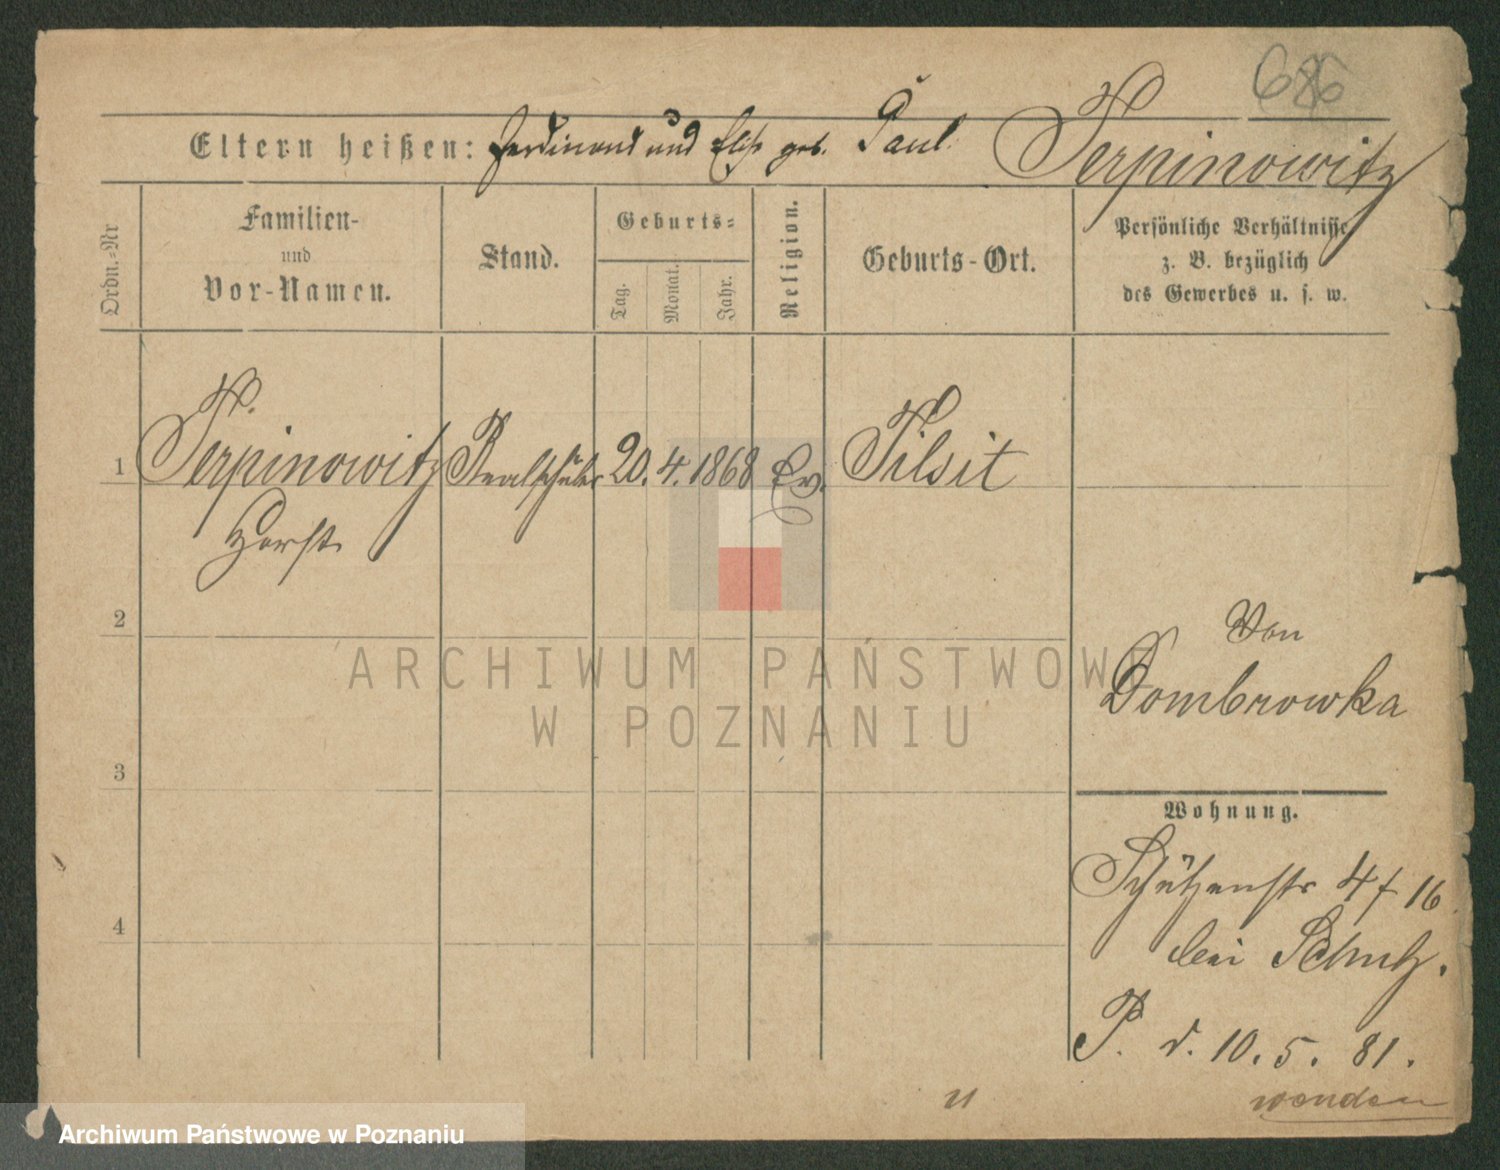 686
Eltern heißen: Ferdinand und Elise geb. Paul. Terpinowitz
Ordn.-Nr
Familien-
und
Vor-Namen.
Stand.
Geburts-
Tag.
Monat.
Jahr.
Religion.
Geburts-Ort.
Persönliche Verhältnisse
z. B. bezüglich
des Gewerbes u. s. w.
1 Terpinowitz Realschüler 20. 4. 1868 Ev. Tilsit
Horst
2
Von
Dombrowka
3
Wohnung.
Schützenstr 4 f 16
bei Schulz.
4
P. d. 10. 5. 81.
wenden
ARCHIWUM PAŃSTWOWE
W POZNANIU
Archiwum Państwowe w Poznaniu